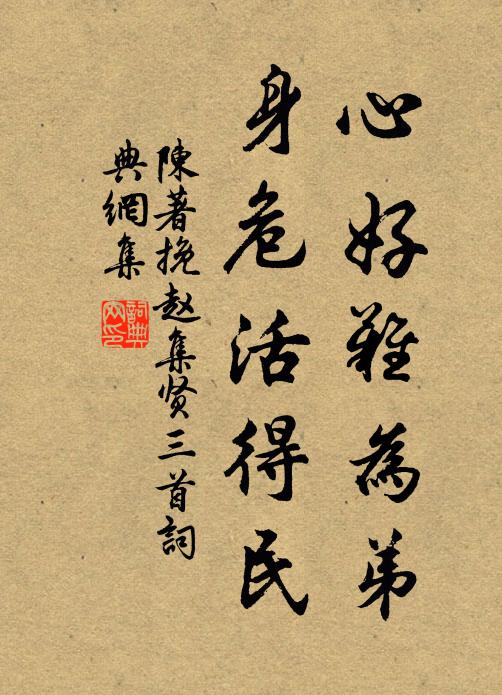 心好難為弟
身危活得民
陳著挽赵集贤三首詞
典網集
詞典
网印